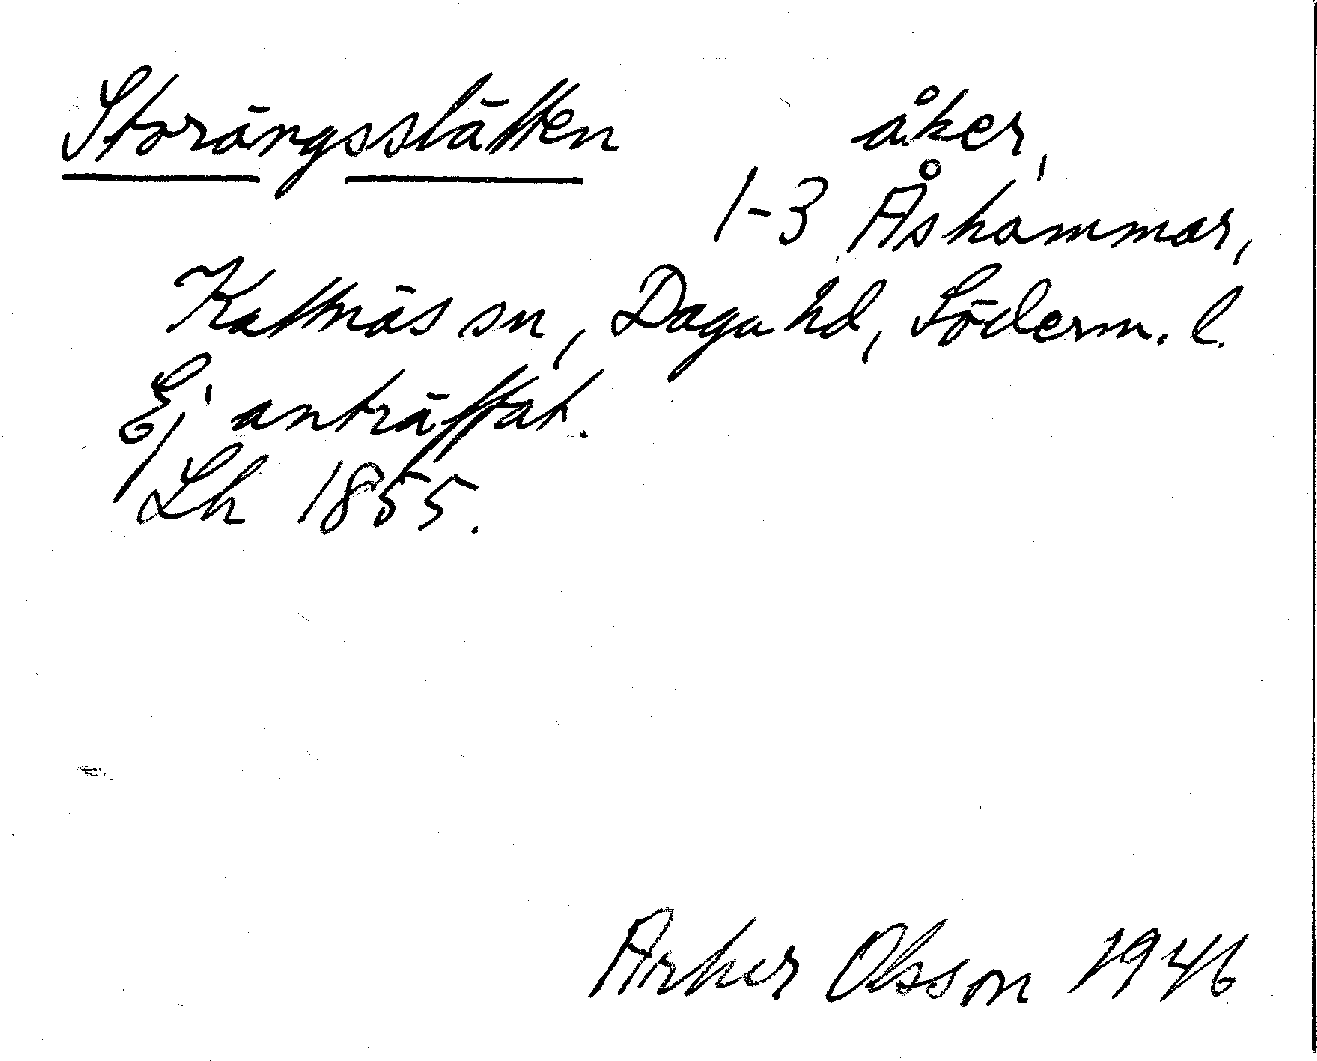 Storängsslätten åker,
1-3 Åshammar,
Kattnäs sn, Daga hd, Söderm. l.
Ej anträffat.
Lh 1855.
Artur Olsson 1946